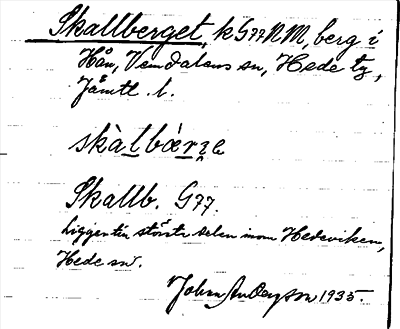 Skallberget, k G77 NM, berg i
Hån, Vemdalens sn, Hede tg,
Jämtl. l.
skàlbærge
Skallb. G77.
Ligger till största delen inom Hedeviken,
Hede sn.
Johan Anderson 1935.